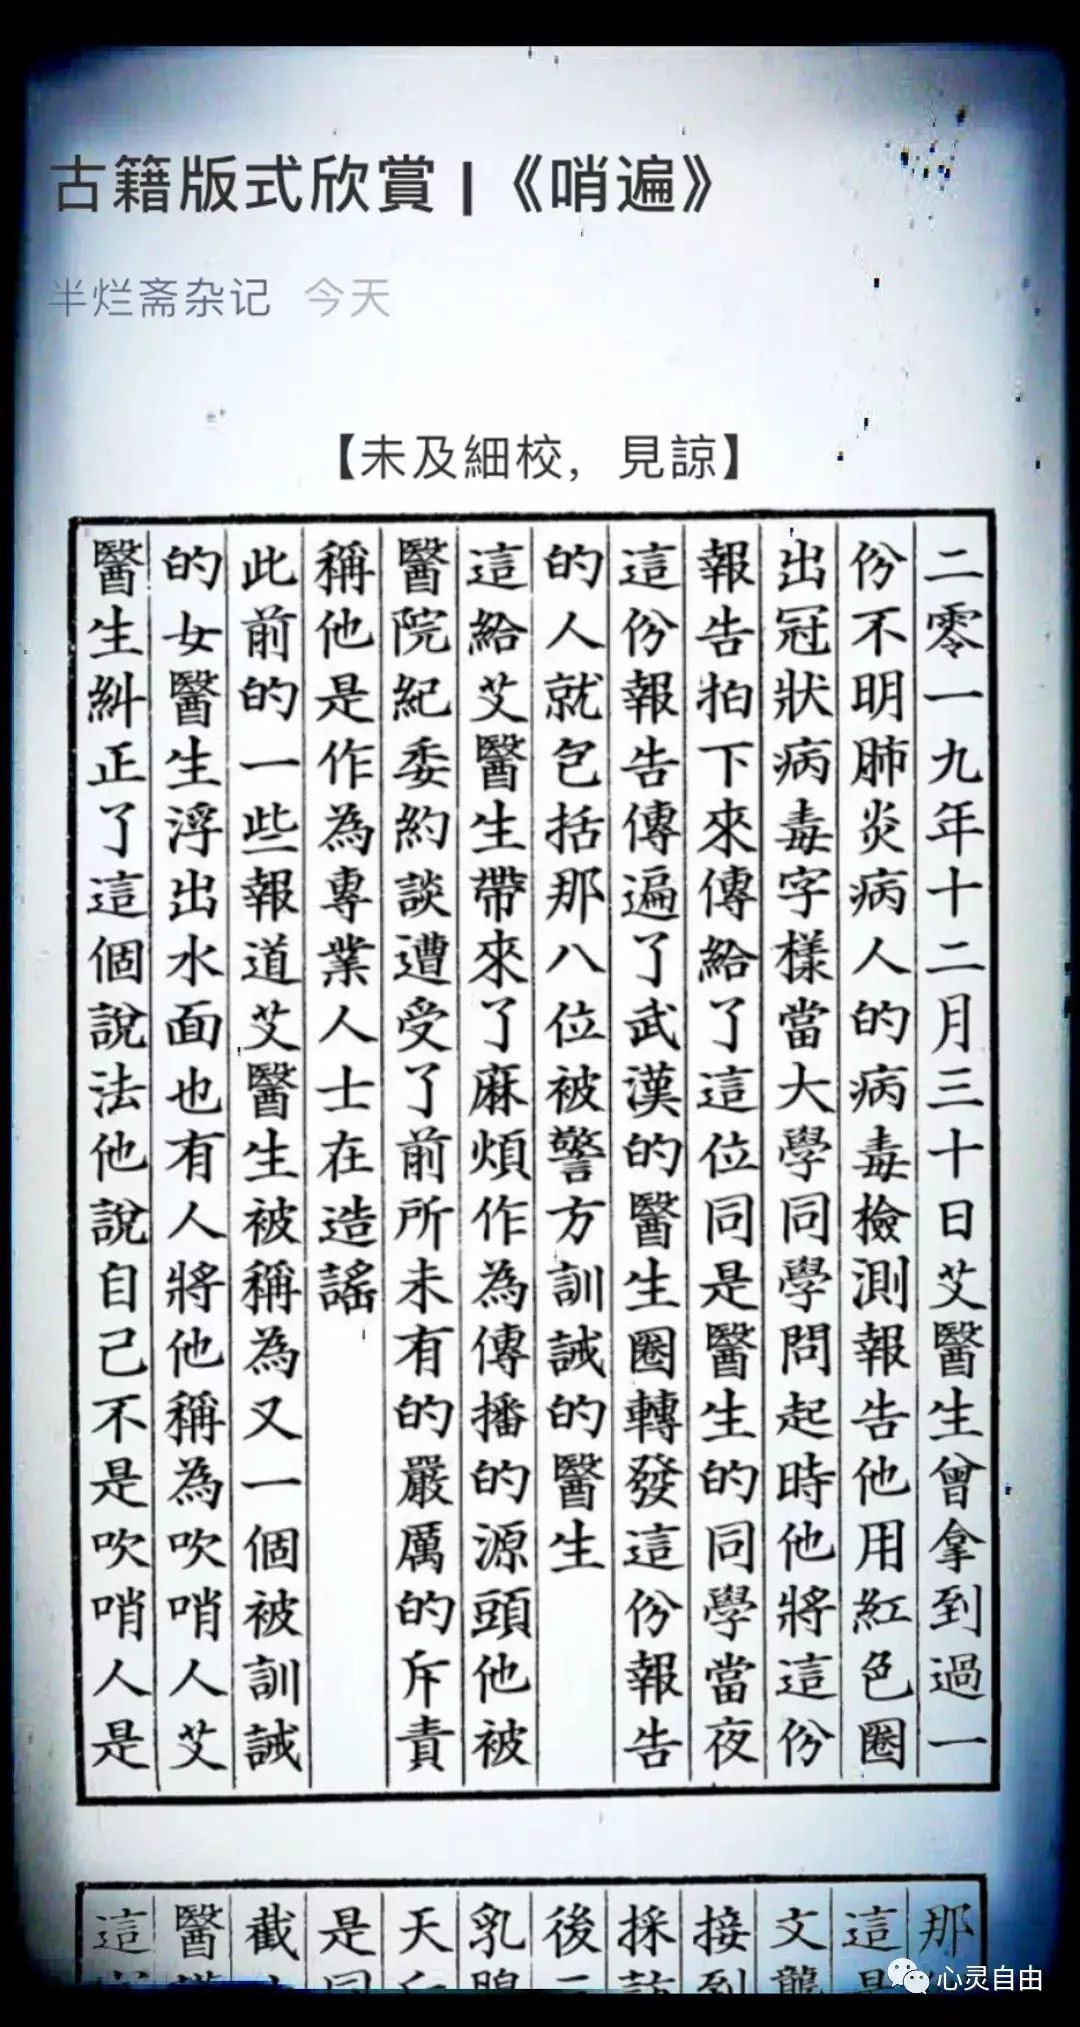 古籍版式欣賞 | 《哨遍》
半烂斋杂记 今天
【未及細校，見諒】
二零一九年十二月三十日艾醫生曾拿到過一
份不明肺炎病人的病毒檢測報告他用紅色圈
出冠狀病毒字樣當大學同學問起時他將這份
報告拍下來傳給了這位同是醫生的同學當夜
這份報告傳遍了武漢的醫生圈轉發這份報告
的人就包括那八位被警方訓誡的醫生
這給艾醫生帶來了麻煩作為傳播的源頭他被
醫院紀委約談遭受了前所未有的嚴厲的斥責
稱他是作為專業人士在造謠
此前的一些報道艾醫生被稱為又一個被訓誡
的女醫生浮出水面也有人將他稱為吹哨人艾
醫生糾正了這個說法他說自己不是吹哨人是
那
這是
文
接到
採訪
後
乳
天
是同
截
醫
這
心灵自由